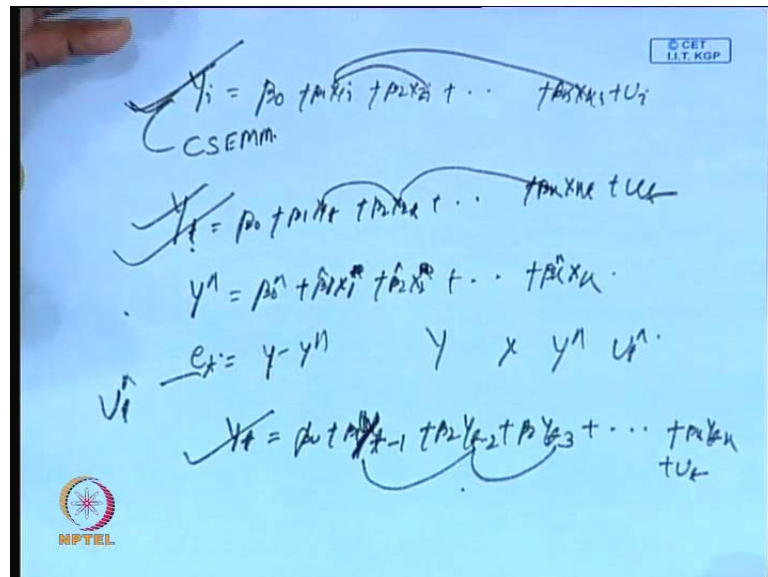 © CET
I.I.T. KGP
Yi = β0 + β1x1i + β2x2i + ·· + βkxki + Ui
CSEMM.
Yt = β0 + β1x1t + β2x2t + ·· + βkxkt + Ut
y^ = β0^ + β̂1x1 + β̂2x2 + ·· + βk^xk.
et = y - y^ Y X y^ U^.
Ut^
Yt = β0 + β1Yt-1 + β2Yt-2 + β3Yt-3 + ··· + βkYt-k
+ Ut
NPTEL